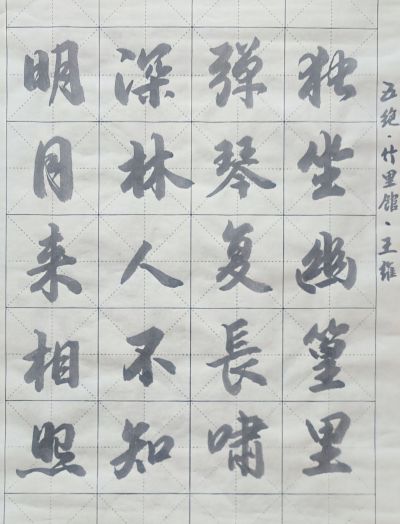 五绝·竹里馆·王维
独坐幽篁里
弹琴复長啸
深林人不知
明月来相照